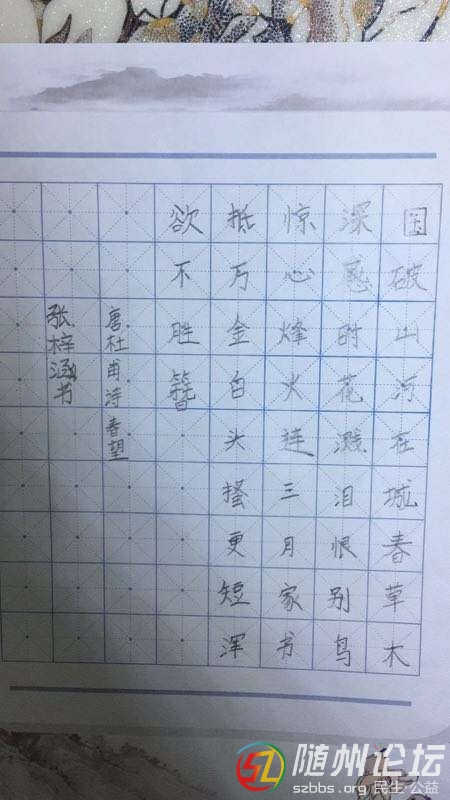 国破山河在城春草木
深感时花溅泪恨别鸟
惊心烽火连三月家书
抵万金白头搔更短浑
欲不胜簪
唐杜甫诗春望
张梓涵书
随州论坛
szbbs.org 民生·公益